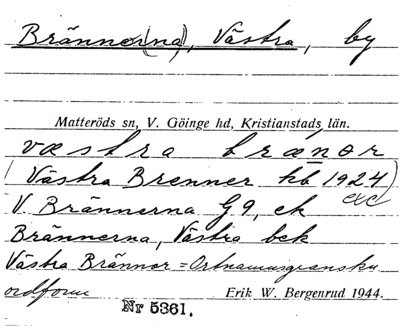 Bränner(na), Västra, by
Matteröds sn, V. Göinge hd, Kristianstads län.
væstra brænər
(Västra Brenner kb 1924)
V. Brännerna G9, ek
Brännerna, Västra bek
Västra Brännor = Ortnamnsgransku
ordform Erik W. Bergenrud 1944.
Nr 5361.